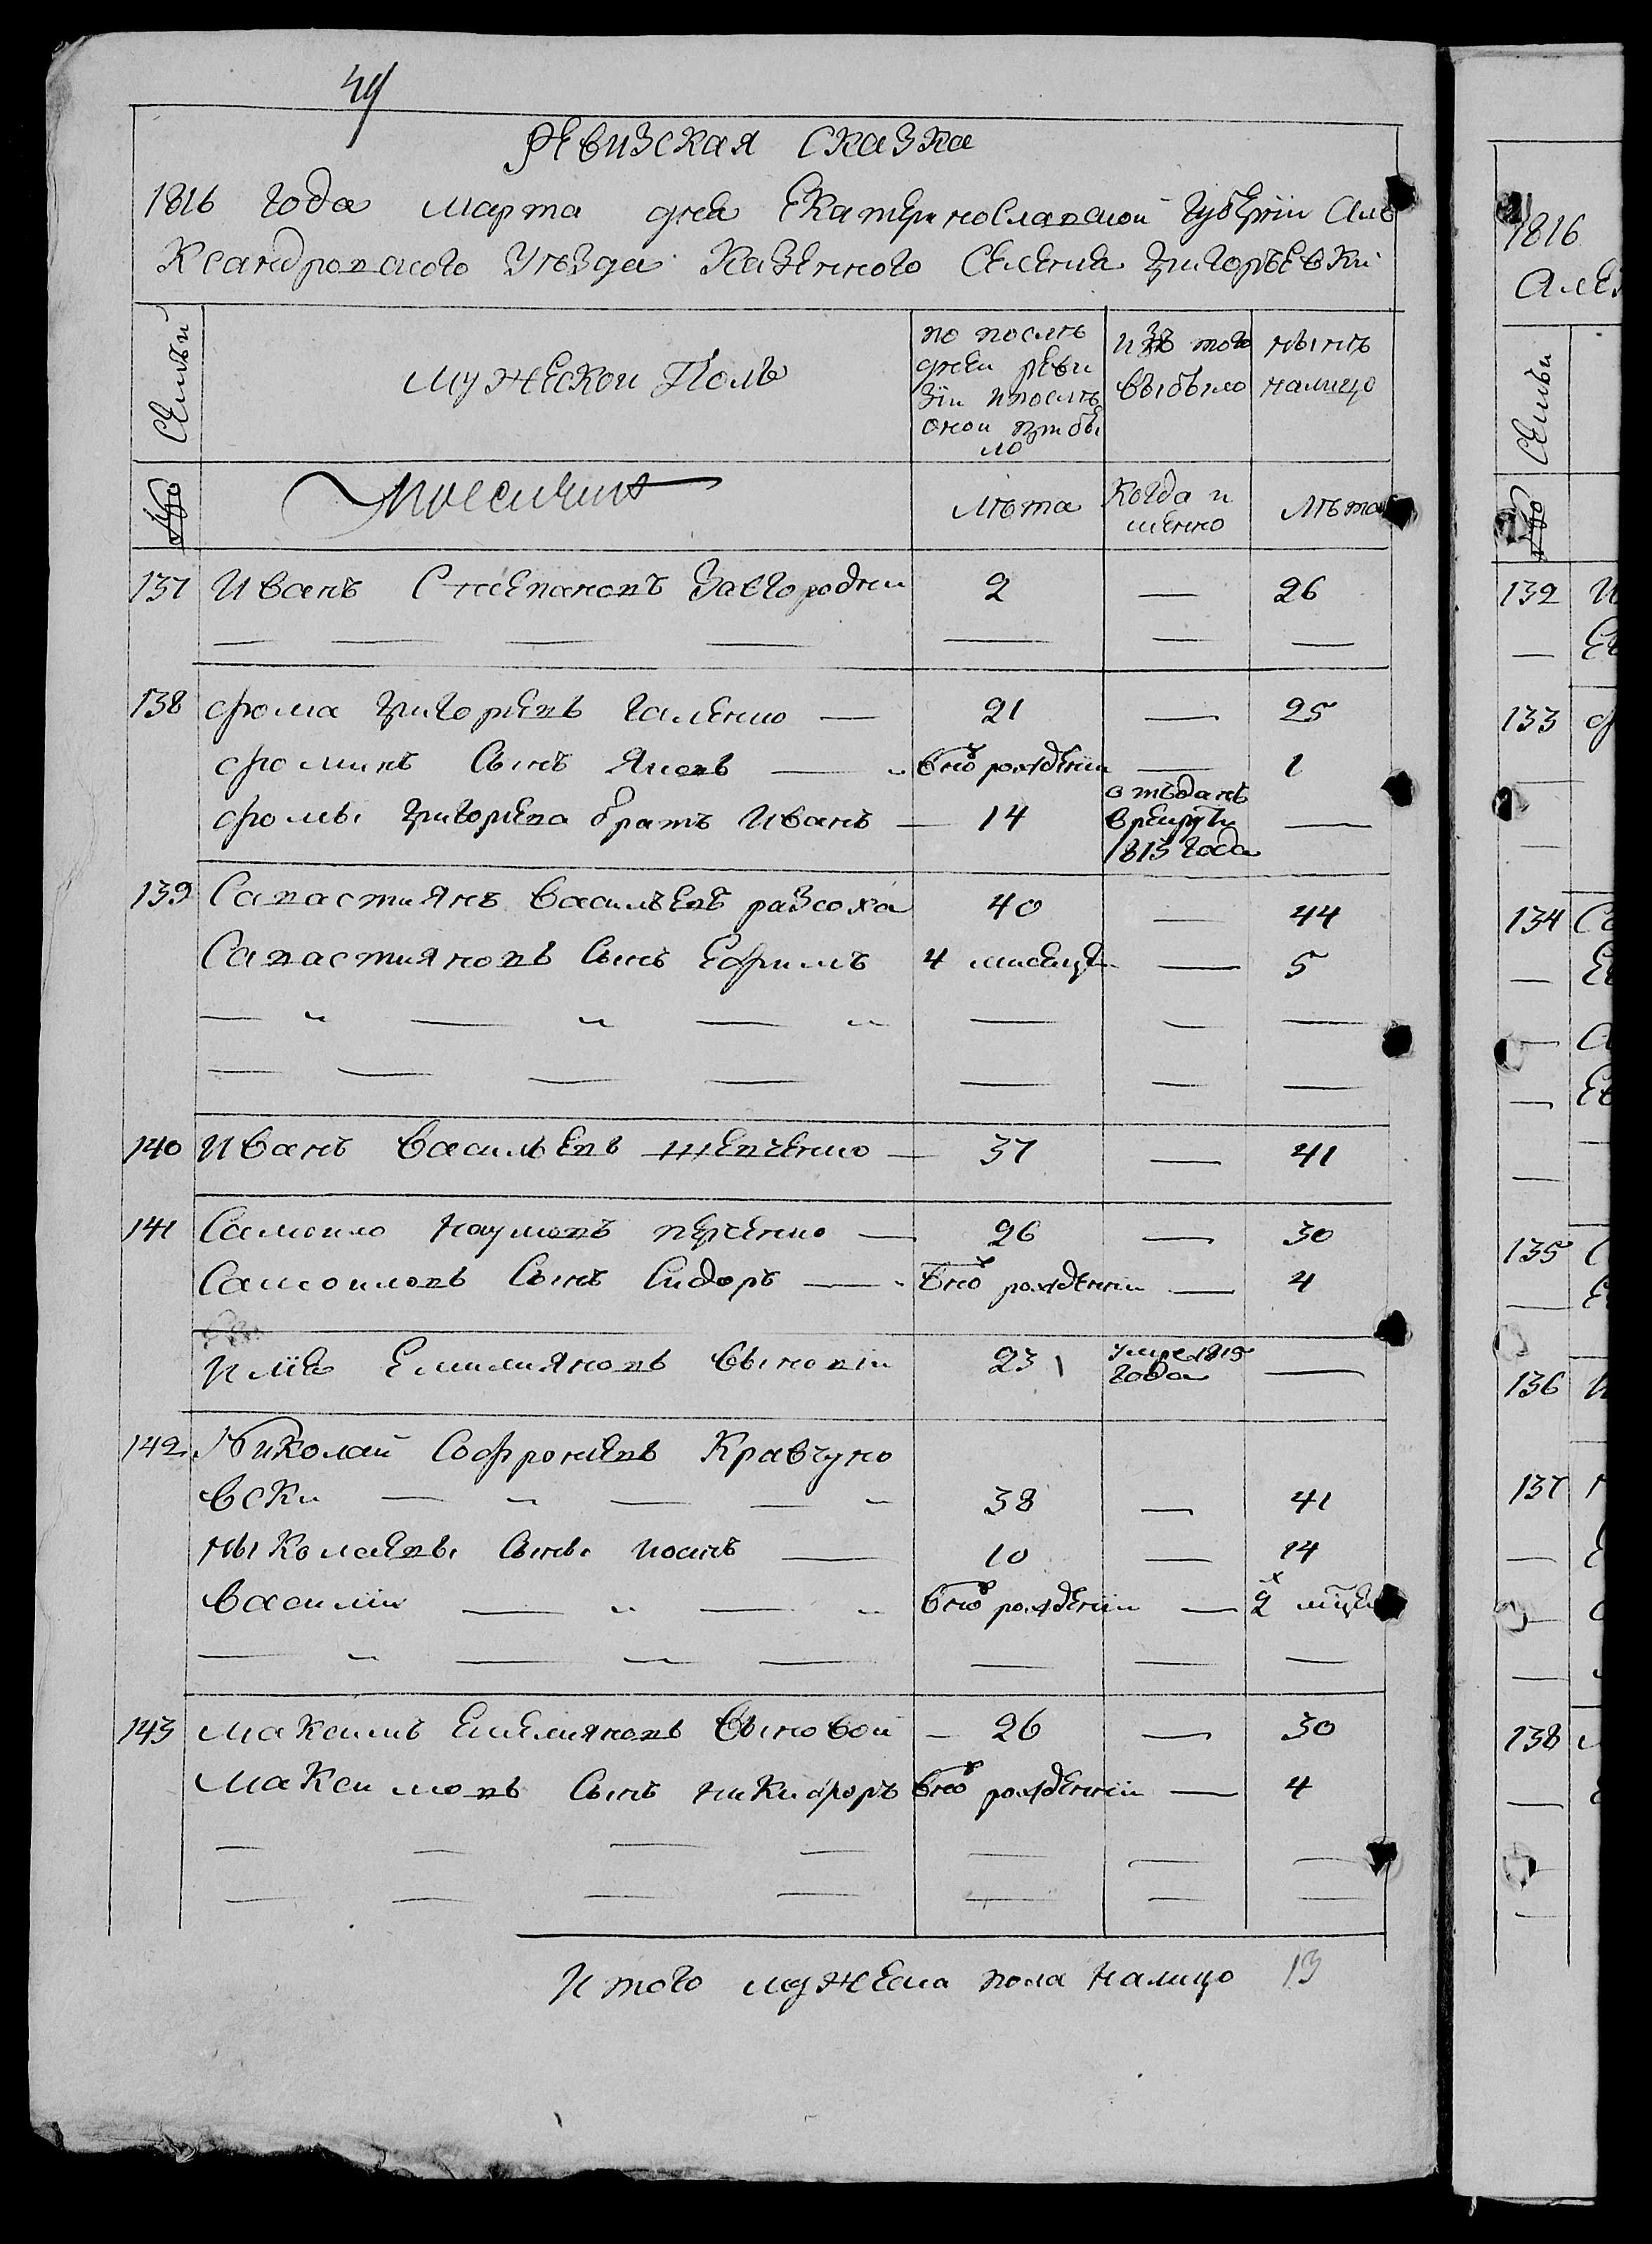 44
Ревизская сказка
1816 года марта дня Екатеринославской губернїи Але
Ксандровского уѣзда Казенного Селения григорьевки
Семьи
мужескои Полъ
по послѣ
днеи реви
зїи и послѣ
онои прибы
ло
изъ того
выбыло
нынѣ
налицо
№ро
лѣта
Когда и
менно
Лѣта
137 Иванъ Степановъ Завгородни 2 — 26
138 фома григориевъ галенко — 21 — 25
фоминъ Сынъ Яковъ — вно рожденїи — 1
фомы григориева братъ Иванъ — 14 отъданъ —
врекруты
1813 года
139 Савастиянъ василъевъ разсоха 40 — 44
Савастияновъ Сынъ Ефимъ 4 — 5
140 Иванъ васильевъ шевченко — 37 — 41
141 Самоило наумовъ — 26 — 30
Самоиловъ Сынъ Сидоръ — вно рожденїи — 4
Илїя Емилияновъ выновїи 23 умре 1815 —
года
142 Николай Софрониевъ Кравчуно
вски 38 — 41
ныколаевы Сыны — 10 — 14
василїи — вно рожденїи — 2 мцы
143 максимъ Емелияновъ выновой — 26 — 30
максимовъ Сынъ никифоръ вно рожденїи — 4
Итого мужеска пола налицо 13
1816
Алек
Семьи
№ро
132 И
133 ф
134 Са
135 С
136 И
137 Н
138 М